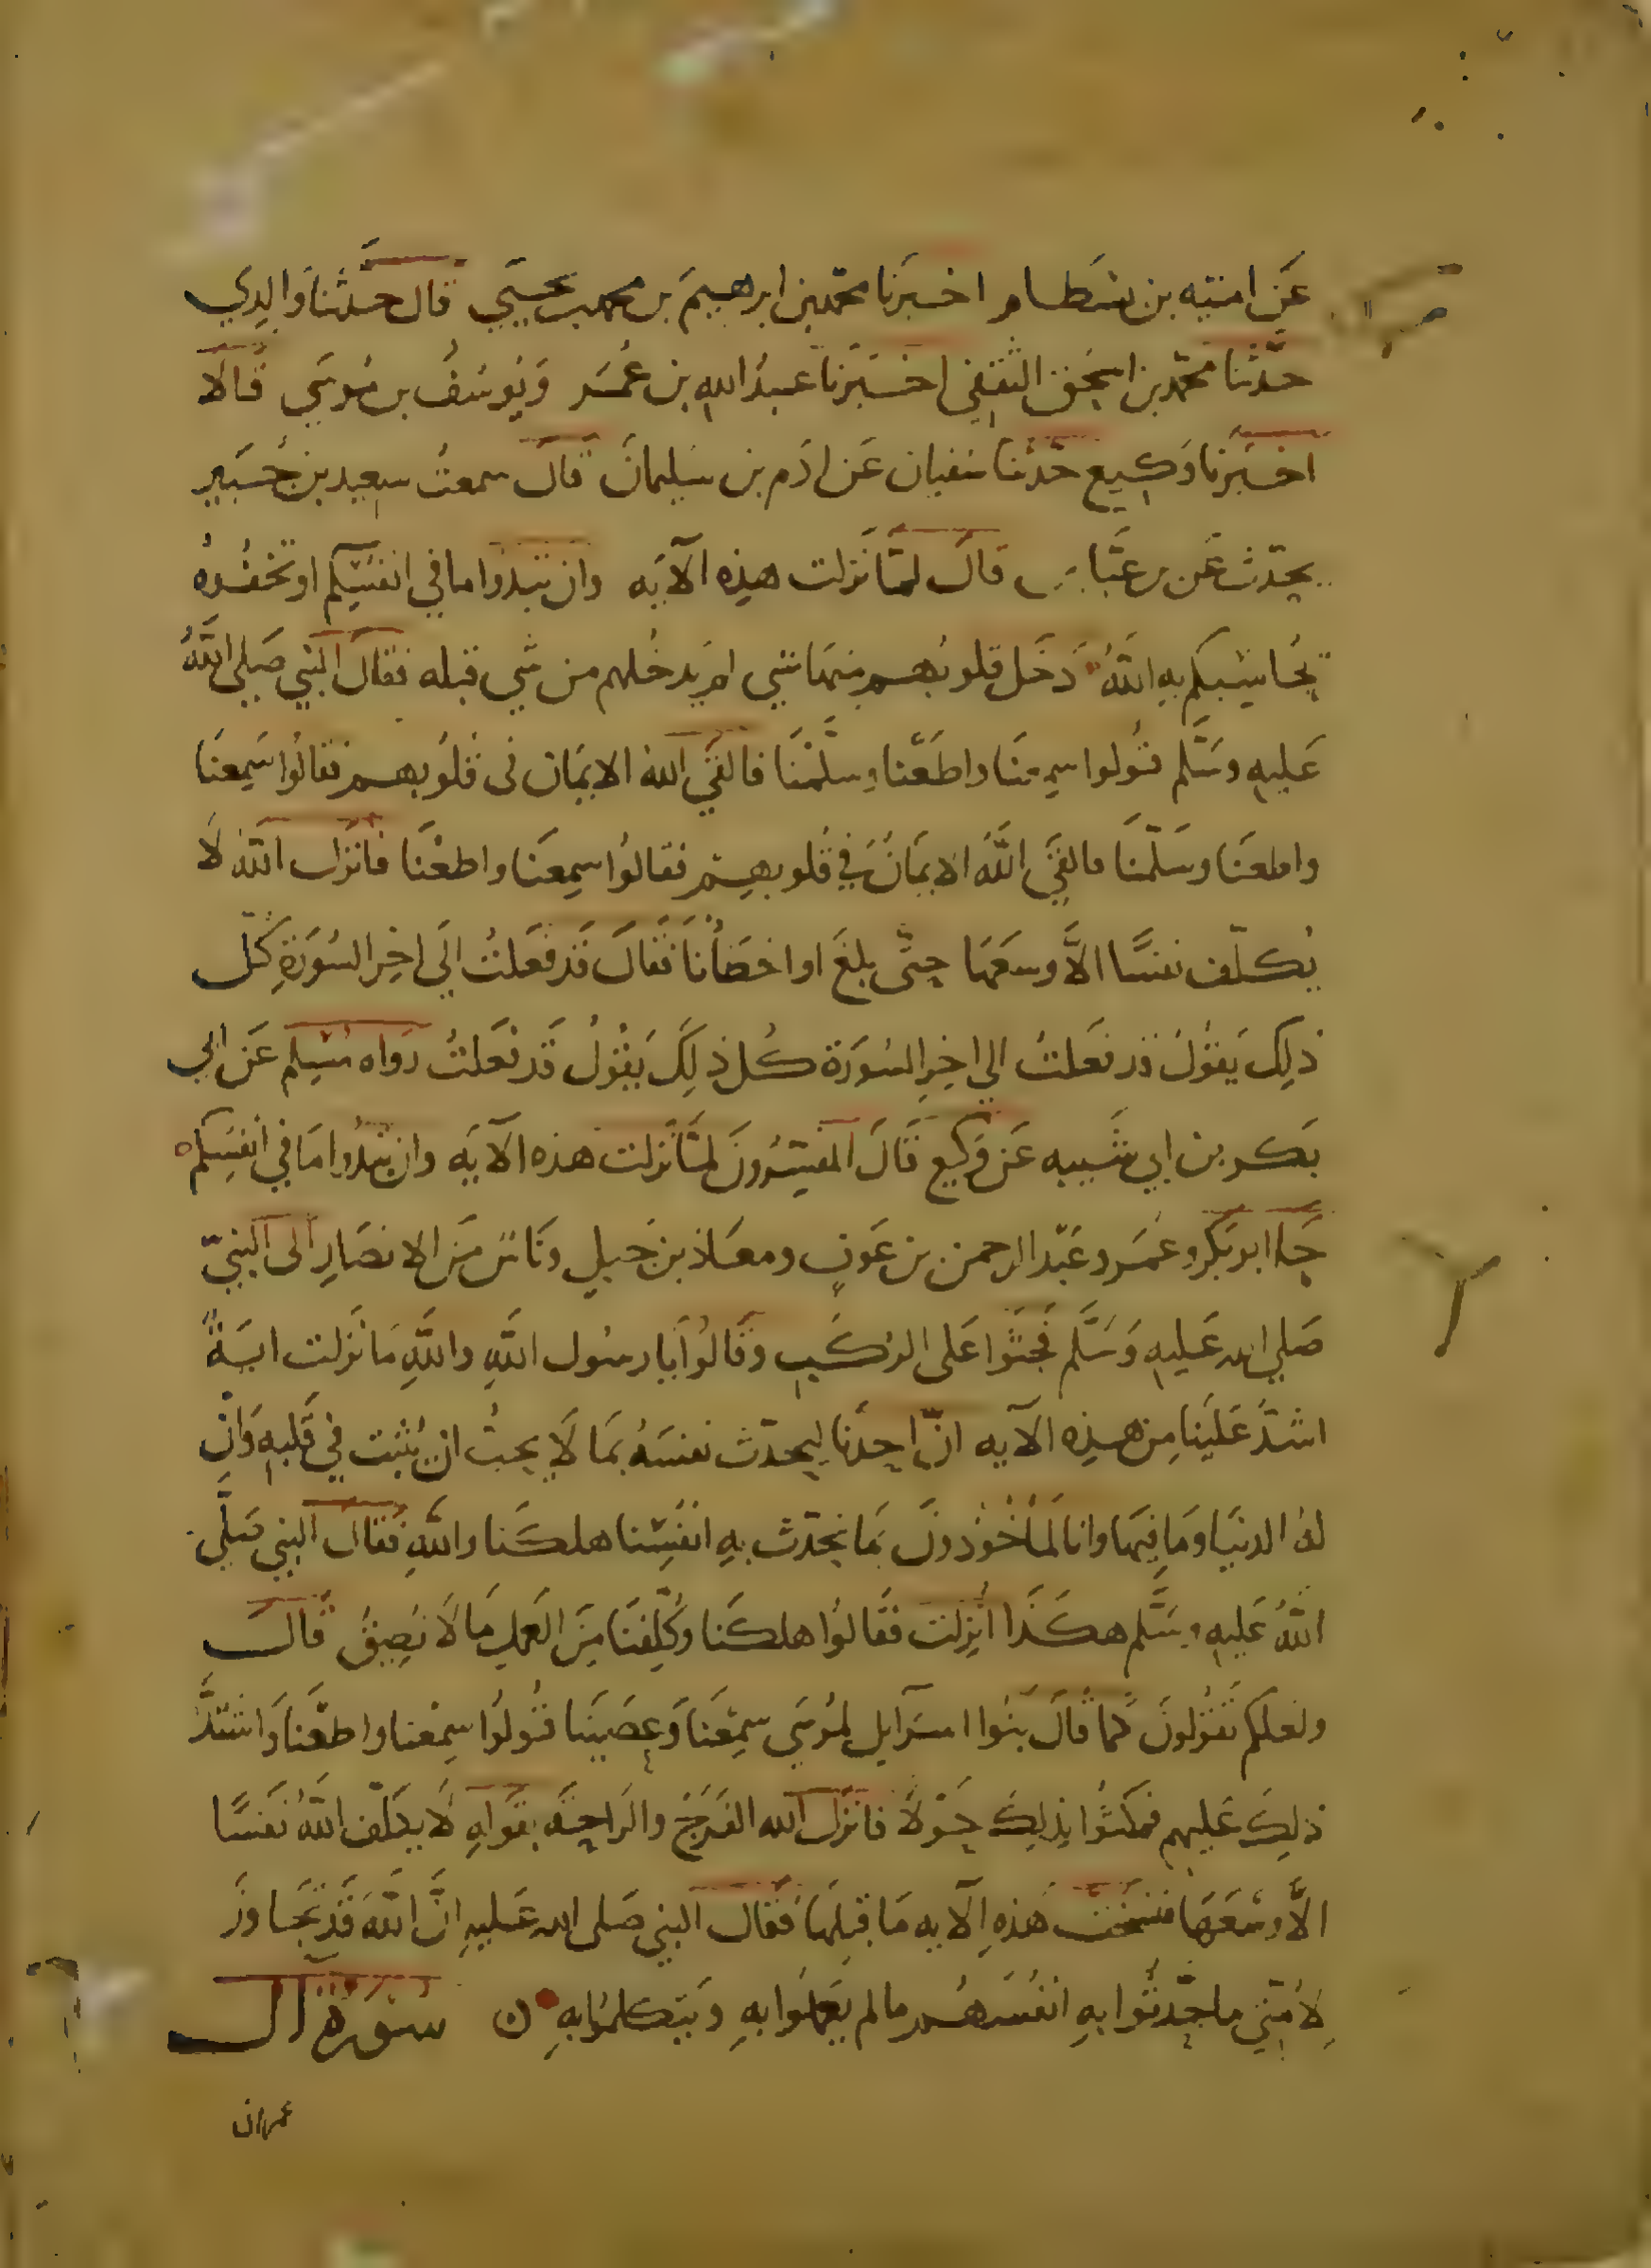 عَن اميّه بن بسطام اخبرَنا محمّد بن ابرهيمَ بن محمد بن يحيَى قال حدثنا وَالِدِي
حدّثنا محمّد بن اسحق الثقفى اخبَرَنا عبدُ الله بن عُمَر وَيُوسُفُ بن مُوسَى قَالا
اخبَرنا وَكيع حَدثنا سفيان عَن ادَم بن سليمانَ قالَ سمعتُ سعيد بن جُبَير
يحدّث عَن بن عبَّاس قالَ لمّا نَزلت هذِه الآيَه وَان تبدُوا ما في انفسِكُم او تخفُوهُ
يُحَاسِبكم بِهِ اللهُ دَخَل قلوبهم منهَا شى لم يَدخُلهم من شي قبله فقالَ النبي صَلى اللهُ
عَليهِ وسَلّم قُولوا سمِعنَا واطَعنا وسلّمنَا فالقَى اللهُ الايمَان فى قلُوبهم فقالوُا سَمِعنَا
واطعنَا وسَلّمنَا فالقَى اللهُ الايمَانَ في قلُوبهِم فقالوُا سمِعنَا واطعْنَا فانزل اللهُ لا
يُكلّف نفسًا الاَّ وسعَهَا حتّى بلغَ او اخطأنَا فَقالَ قَد فعَلتُ الَى اخِر السُورَةِ كل
ذلِك يَقوُل قد فعَلتُ الى اخِر السُورَة كُل ذلِكَ يَقوُلُ قَد فعَلتُ رَواه مُسلم عَن ابى
بَكر بن ابى شَيبه عَن وَكيع قَالَ المفسّرُونَ لمّا نَزلت هذه الآيَه وان تبدُوا مَا في انفسِكم
جَاا ابو بَكر وعُمَر وعَبد الرحمن بن عَوفٍ ومعَاذ بن جَبلٍ ونَاسٌ مِنَ الانصَارِ الى النبيّ
صَلى الله عَليهِ وَسَلَّم فجَثَوا عَلى الرُكَبِ وَقَالوُا يَا رسُول اللهِ واللهِ مَا نَزلت ايَةٌ
اشدَّ عَليَنا مِن هذِه الآيه انّ احدَنا ليحدّث نفسَهُ بمَا لا يحبُّ ان يثبت في قَلبهِ وَانّ
لهُ الدنيَا ومَا فِيهَا وانا لمأخُوذونَ بمَا نحدّث بهِ انفسنا هلكنا واللهِ فقَالَ النبي صَلّى
اللهُ عَليهِ وسَلّم هكَذا انزِلت فقَالوُا هلكنَا وكُلّفنَا مِنَ العَملِ مَا لا نُطيقُ قَال
ولعلكم تقوُلونَ كما قالَ بنوُا اسرَايل لمُوسَى سمِعنَا وَعصَينَا قوُلوُا سمِعْنا واطعْنا وَاشتدَّ
ذلِك عَليهم فمكثوُا بذلِك حَولًا فانزَل الله الفَرَجَ والرَاحةَ بقَولهِ لا يكلّف اللهُ نَفسًا
الاَّ وسْعَهَا فنسَخت هَذهِ الآيه مَا قبلهَا فَقالَ النبي صَلى الله عَليهِ انَّ اللهَ قَد تجَاوَزَ
لامّتي ما حدّثوُا بهِ انفُسَهُم ما لم يَعملوُا بهِ وَيتكلموُا بهِ ن سورة ال
عمران